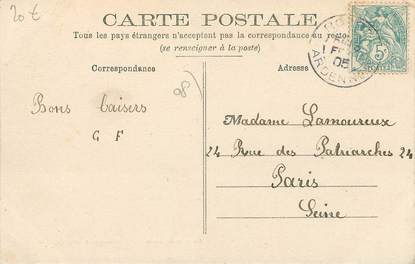 20 €
CARTE POSTALE
Tous les pays étrangers n'acceptent pas la correspondance au recto
(se renseigner à la poste)
Correspondance
Adresse
05
ARDENN
5c
08)
Bons baisers
G F
Madame Lamoureux
24 Rue des Patriarches 24
Paris
Seine